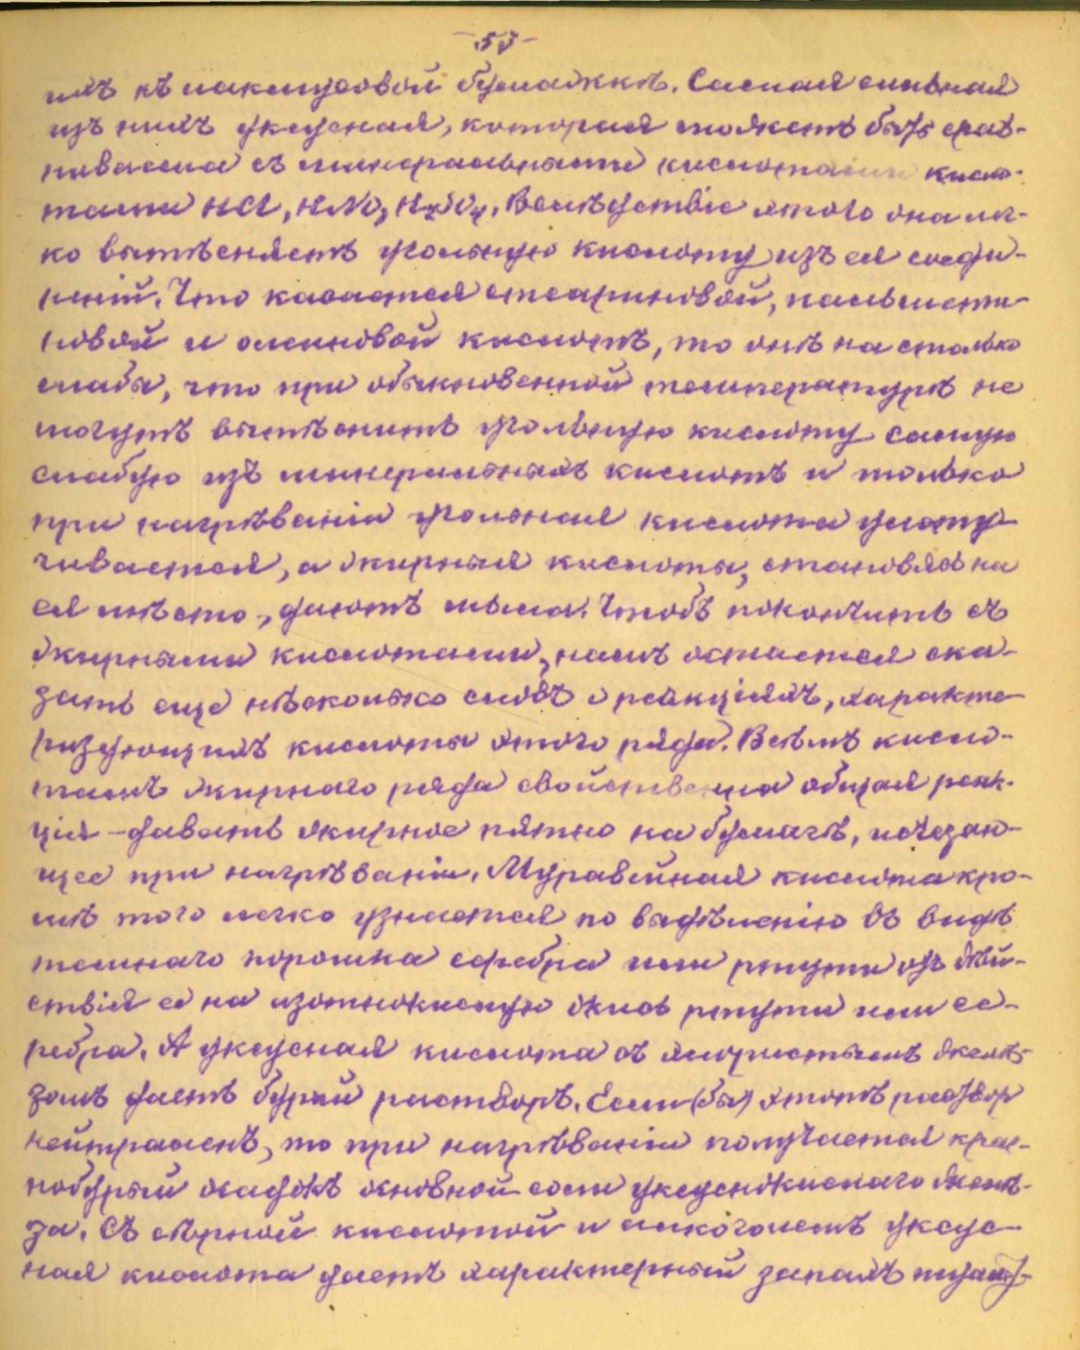 -53-
ихъ къ лакмусовой бумажкѣ. Самая сильная
изъ нихъ уксусная, которая можетъ быть срав-
ниваема съ минеральными кислотами кисло-
тами HCl, HNO3, H2SO4. Вслѣдствіе этого она лег-
ко вытѣсняетъ угольную кислоту изъ ея соеди-
неній. Что касается стеариновой, пальмити-
новой и олеиновой кислотъ, то онѣ на столько
слабы, что при обыкновенной температурѣ не
могутъ вытѣснить угольную кислоту самую
слабую изъ минеральныхъ кислотъ и только
при нагрѣваніи угольная кислота улету-
чивается, а жирныя кислоты, становясь на
ея мѣсто, даютъ мыла. Чтобъ покончить съ
жирными кислотами, намъ остается ска-
зать еще нѣсколько словъ о реакціяхъ, характе-
ризующихъ кислоты этого ряда. Всѣмъ кисло-
тамъ жирнаго ряда свойственна общая реак-
ція - давать жирное пятно на бумагѣ, исчезаю-
щее при нагрѣваніи. Муравейная кислота кро-
мѣ того легко узнается по выдѣленію въ видѣ
темнаго порошка серебра или ртути отъ дѣй-
ствія ея на азотнокислую окись ртути или се-
ребра. А уксусная кислота съ хлористымъ желѣ-
зомъ даетъ бурый растворъ. Если (бы) этотъ раствор
нейтраленъ, то при нагрѣваніи получается крас-
нобурый осадокъ основной соли уксуснокислаго желѣ-
за. Съ сѣрной кислотой и алкоголемъ уксус-
ная кислота даетъ характерный запахъ